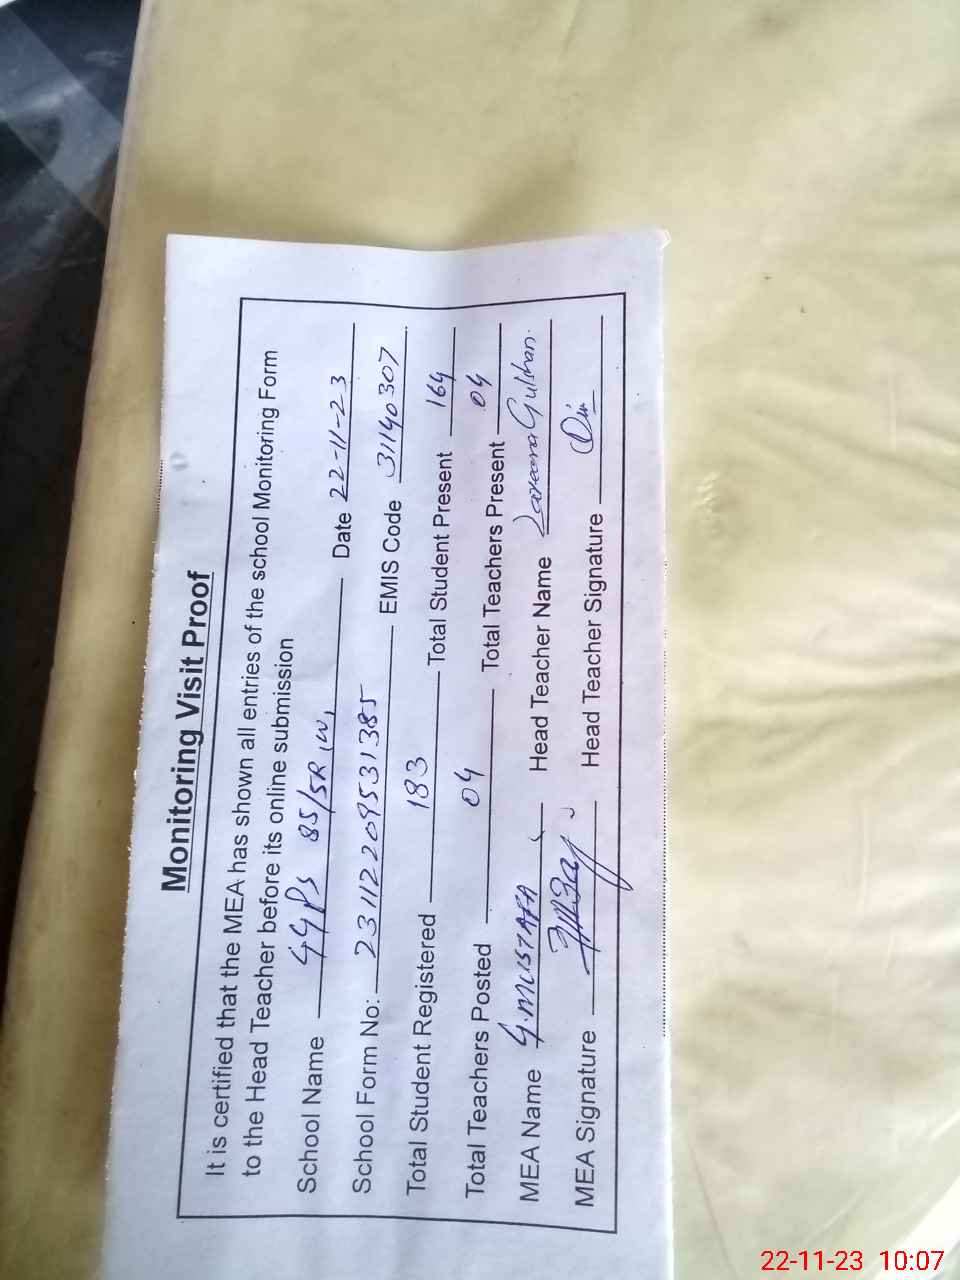 Monitoring Visit Proof
It is certified that the MEA has shown all entries of the school Monitoring Form
to the Head Teacher before its online submission
School Name GGPS 85/5R (W) Date 22-11-23
School Form No: 23112209531385 EMIS Code 31140307
Total Student Registered 183 Total Student Present 164
Total Teachers Posted 04 Total Teachers Present 04
MEA Name G.MUSTAFA Head Teacher Name Gulshan.
MEA Signature Head Teacher Signature
22-11-23 10:07